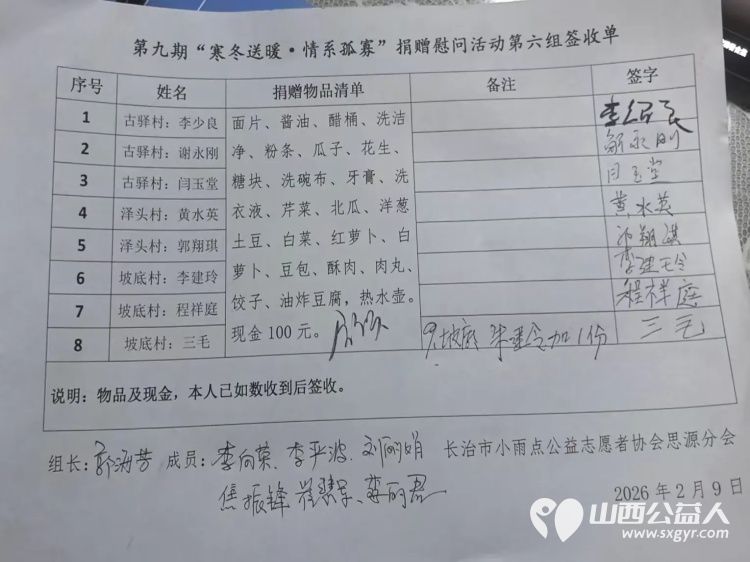 第九期“寒冬送暖·情系孤寡”捐赠慰问活动第六组签收单
序号 姓名 捐赠物品清单 备注 签字
1 古驿村：李少良 面片、酱油、醋桶、洗洁 李少良
2 古驿村：谢永刚 净、粉条、瓜子、花生、 永刚
3 古驿村：闫玉堂 糖块、洗碗布、牙膏、洗 闫玉堂
4 泽头村：黄水英 衣液、芹菜、北瓜、洋葱 黄水英
5 泽头村：郭翔琪 土豆、白菜、红萝卜、白 翔琪
6 坡底村：李建玲 萝卜、豆包、酥肉、肉丸、 李建玲
7 坡底村：程祥庭 饺子、油炸豆腐，热水壶。 程祥庭
8 坡底村：三毛 现金100元。 坡底 加1份 三毛
说明：物品及现金，本人已如数收到后签收。
组长： 成员：李向荣、李平波、刘丽娟 长治市小雨点公益志愿者协会思源分会
焦振锋 李丽君
2026年2月9日
山西公益人
www.sxgyr.com